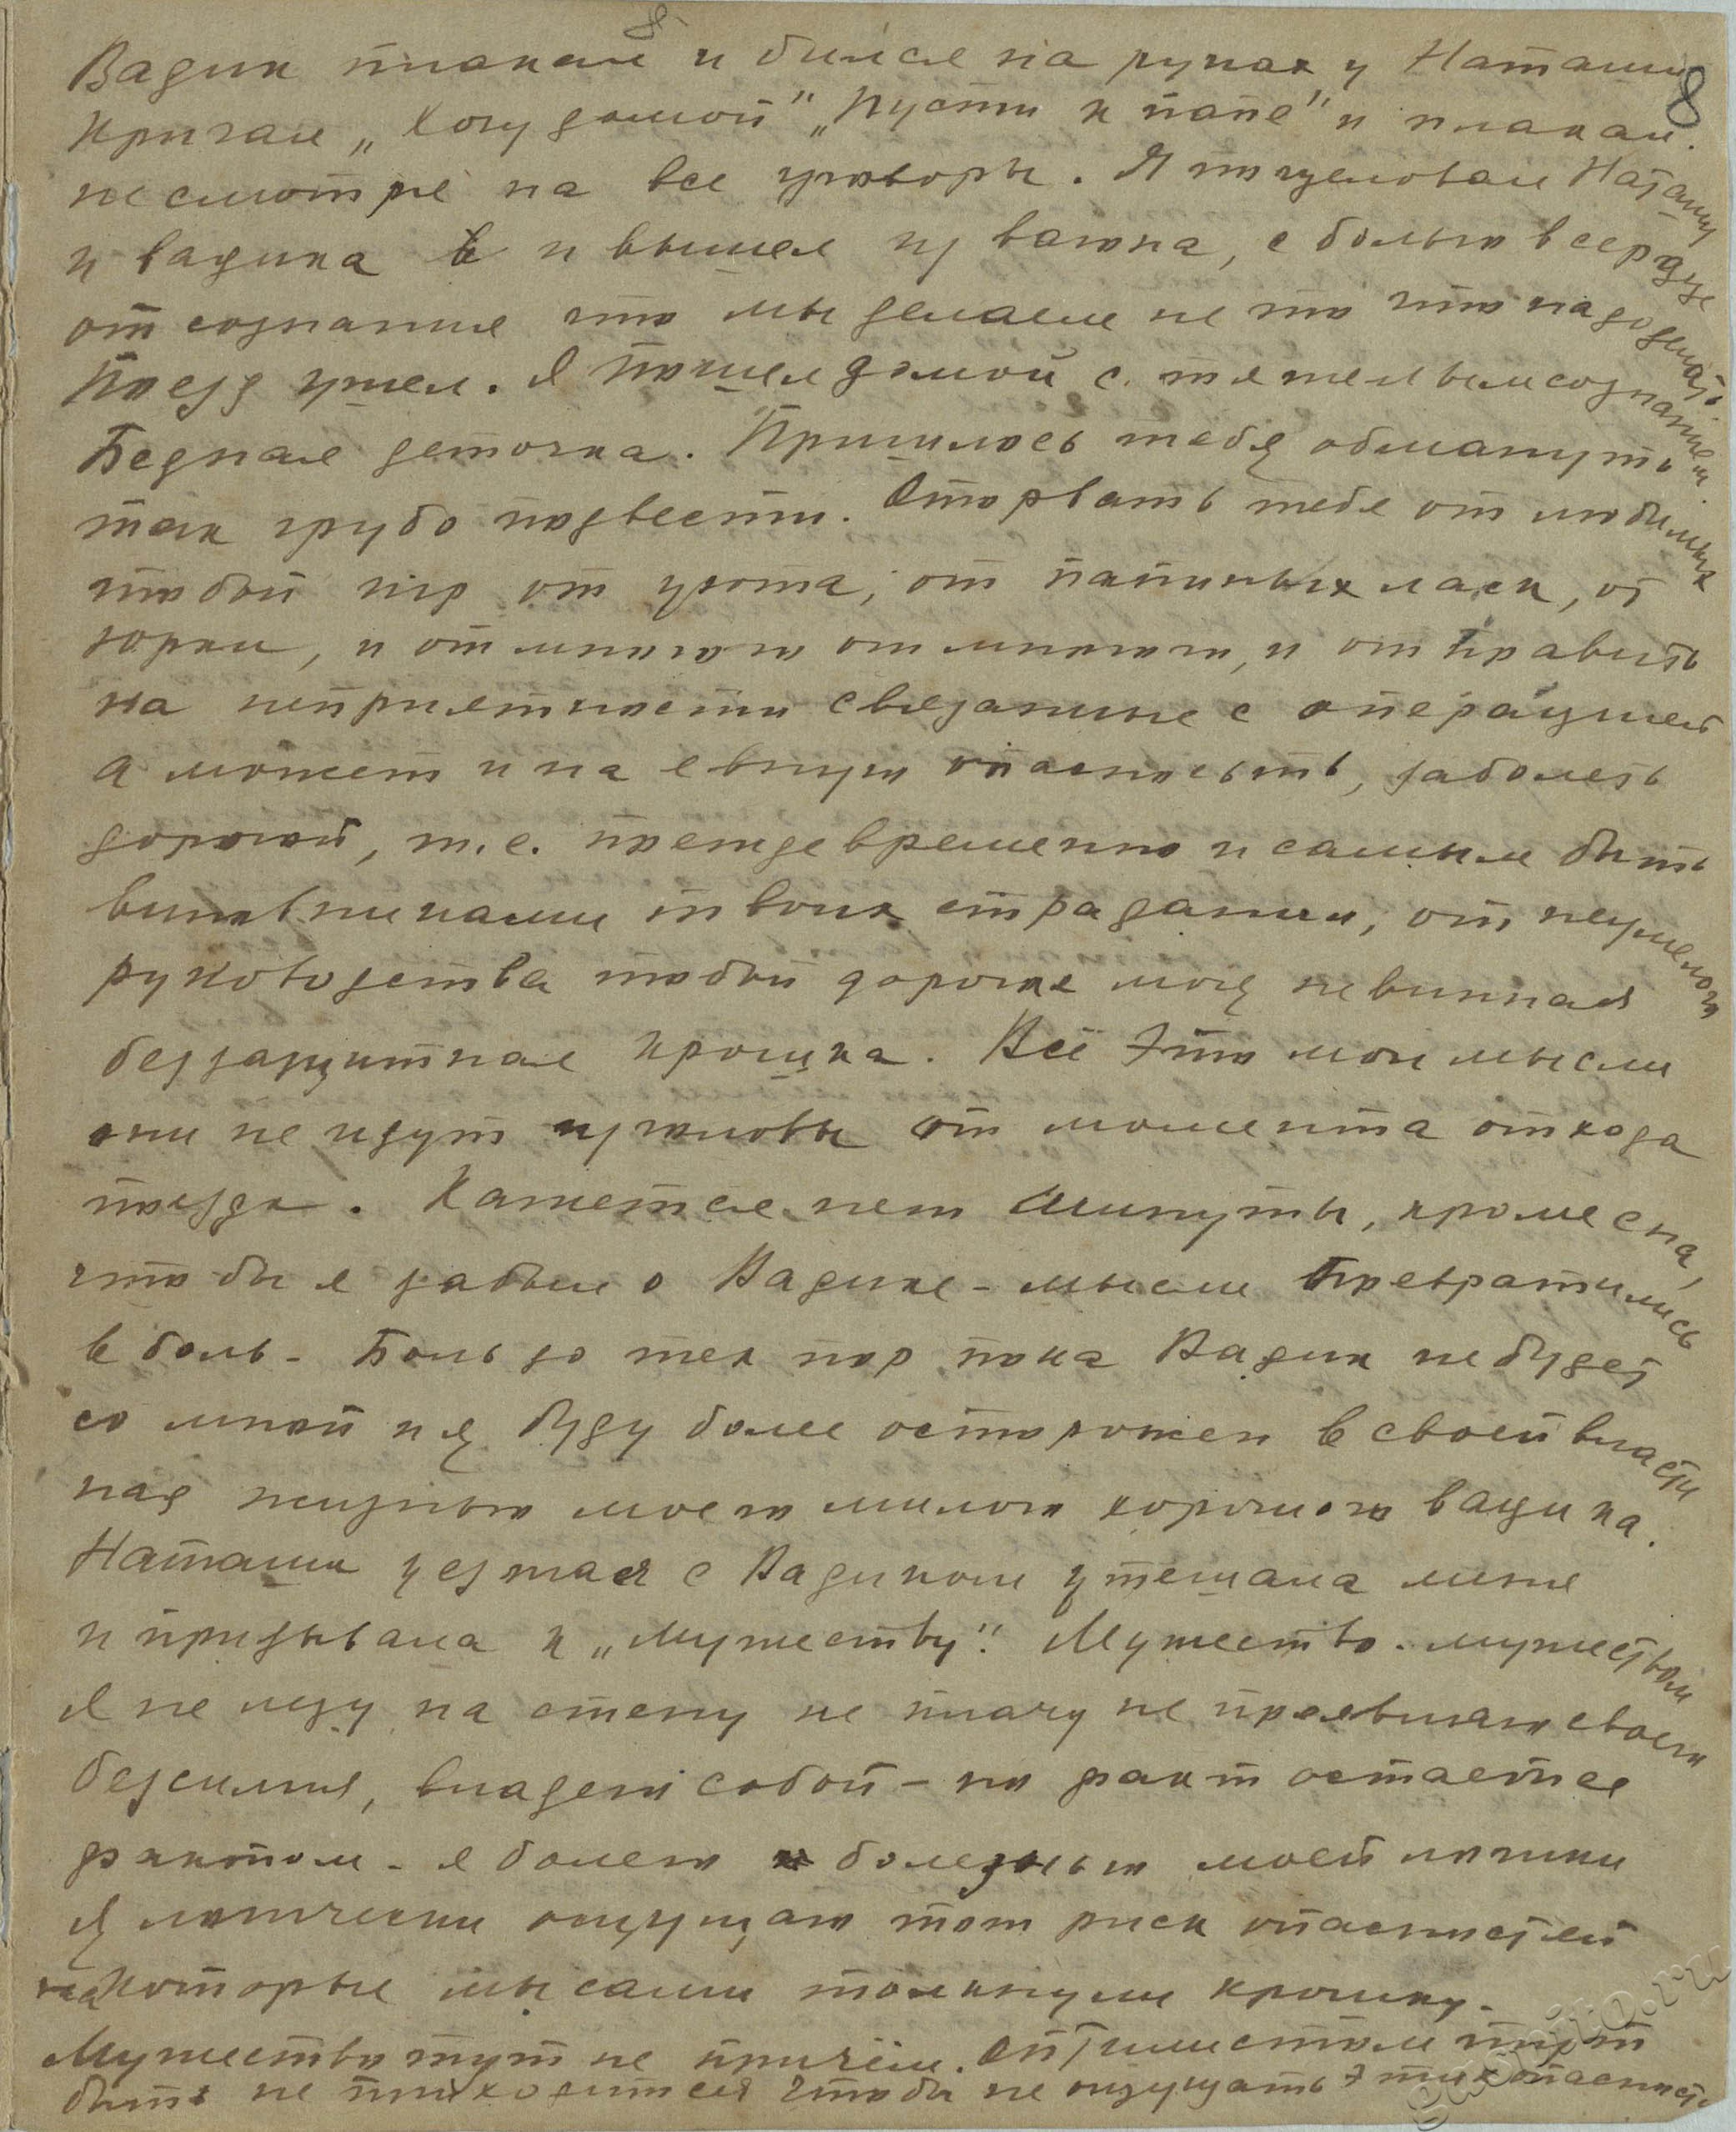 8
8
Вадик плакал и бился на руках у Наташи
кричал „Хочу домой" „Пусти к папе" и плакал.
несмотря на все уговоры. Я поцеловал Наташу
и вадика и вышел из вагона, с болью в сердце
от сознания что мы делаем не то что надо делать.
Поезд ушел. Я пошел домой с тяжелым сознанием.
Бедная деточка. Пришлось тебя обмануть
так грубо подвести. Оторвать тебя от любимых
тобой игр от уюта, от папиных ласк, от
горки, и от многого от многого, и отправить
на неприятности связанные с операцией
а может и на явную опасность, заболеть
дорогой, т.е. преждевременно и самым быть
виновниками твоих страданий, от неумелого
руководства тобой дорогая моя невинная
беззащитная крошка. Всё это мои мысли
они не идут из головы от момента отхода
поезда. Кажется нет минуты, кроме сна,
чтобы я забыл о Вадике - мысли превратились
в боль - Боль до тех пор пока Вадик не будет
со мной и я буду более осторожен в своей власти
над жизнью моего милого хорошего вадика.
Наташа уезжая с Вадиком утешала меня
и призывала к „мужеству". Мужество - мужеством
Я не лезу на стену не плачу не проявляю своего
безсилия, владею собой - но факт остается
фактом - я болею болезнью моей
Я логически ощущаю тот риск опасностей
на которые мы сами толкнули крошку.
Мужество тут не причём. Оптимистом тут
быть не приходится чтобы не ощущать этих опасностей